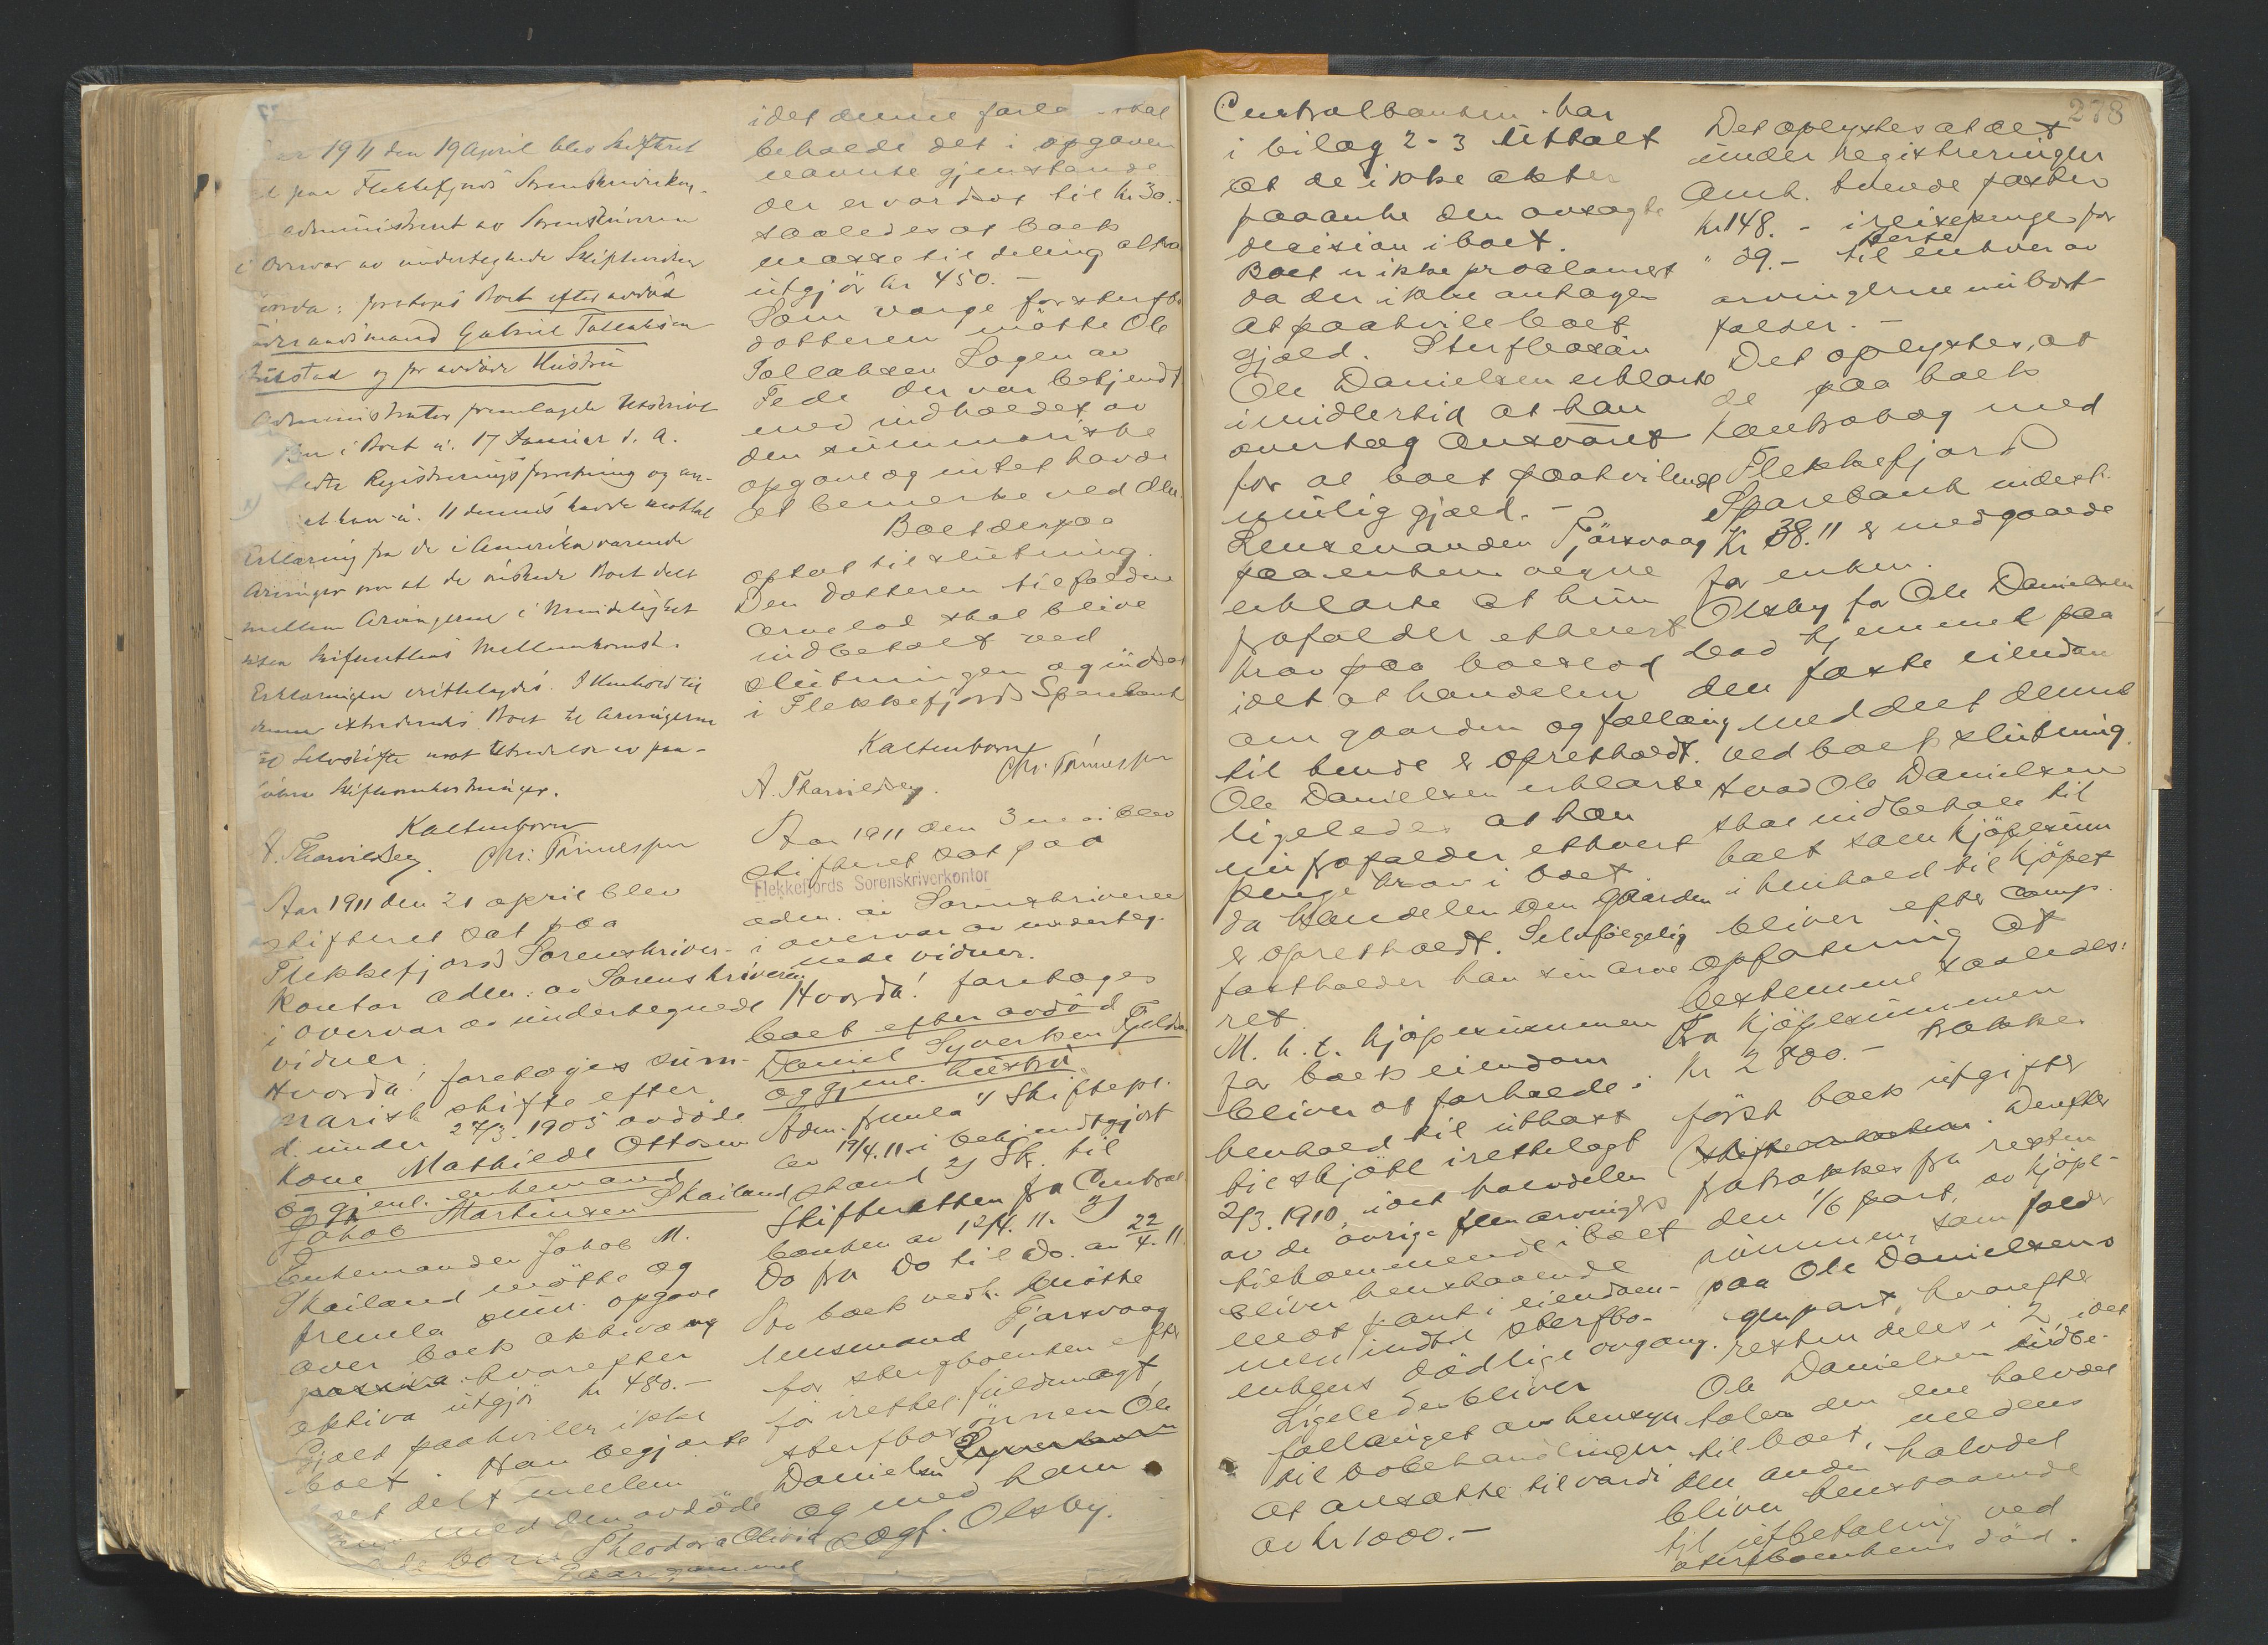 1911 den 19 April blev Skifteret
paa Flekkefjords Sorenskriverkon-
administreret av Sorenskriveren
i Overvær av undertegnede Skiftevidner
foretoges Boet efter avdød
Gabriel Tollaksen
og før avdøde Hustru
Administrator fremlagde Utskrivt
i Boet av 17 Januar d. A.
Registreringsforretning og an-
at han u. 11 dennes havde mottat
Erklæring fra de i Amerika værende
Arvinger om at de ønskede Boet delt
mellem Arvingerne i Mindelighet
uten Skifterettens Mellemkomst.
Erklæringen vittelagdes. I Henhold til
denne extraderedes Boet til Arvingerne
til Selvskifte mot Utredelse av paa-
løbne Skifteomkostninger.
Kaltenborn
A. Tharaldsen. Chr. Tønnessen
Aar 1911 den 21 april blev
skifteret sat paa
Flekkefjords Sorenskriver-
kontor adm. av Sorenskriveren
i overvær av undertegnede
vidner.
Hvorda! foretoges sum-
marisk skifte efter
d. under 27/3. 1905 avdøde
kone Mathilde Ottosen
og gjenl. enkemand
Jakob Martinsen Skailand
Enkemanden Jakob M.
Skailand møtte og
fremla sum. opgave
over boets aktiva og
passiva hvorefter
aktiva utgjør kr 480.-
Gjæld paahviler ikke
boet. Han begjærte
boet delt mellem
med den avdøde
born Theodora Olivia
aar gammel
idet denne forlo skal
beholde det i opgaven
nævnte gjenstande
der er værdsat til kr 30.-
saaledes at boets
masse til deling altsaa
utgjør kr 450.-
Som værge for sterfbo
datteren møtte Ole
Tollaksen Logen av
Fede der var bekjendt
med indholdet av
den summariske
opgave og intet havde
at bemerke ved den.
Boet derpaa
optat til slutning.
Den datteren tilfaldne
arvelod skal blive
indbetalt ved
slutningen og indsat
i Flekkefjords Sparebank
Kaltenborn
A. Tharaldsen. Chr. Tønnessen
Aar 1911 den 3 mai blev
skifteret sat paa
Flekkefjords Sorenskriverkontor
adm. av Sorenskriveren
i overvær av underteg-
nede vidner.
Hvorda! foretoges
boet efter avdød
Daniel Syvertsen Fjeldsaa
og gjenl. hustru
Adm. fremla 1/ Skiftepr.
av 19/4.11 i bekjendtgjort
stand 2/ Sk. til
Skifteretten fra Central
banken av 12/4. 11. 3/
Do fra Do til Do. av 22/4. 11.
Paa boets vedk. møtte
lensmand Tjørsvaag
for sterfboenken efter
for irettel. fuldmagt,
sterfbosønnen Ole
Danielsen
og med ham
sagf. Olsby.
278
Centralbanken har
i bilag 2-3 uttalt
at de ikke akter
paaanke den avsagte
decision i boet.
Boet er ikke proclameret
da der ikke antages
at paahvile boet
gjæld. Sterfbosøn
Ole Danielsen erklærte
imidlertid at han
overtog ansvaret
for al boet paahvilende
mulig gjæld. -
Lensmanden Tjørsvaag
paa enkens vegne
erklærte at hun
frafalder ethvert
krav paa boeslod
idet at handelen
om gaarden og føllaug
til hende er opretholdt.
Ole Danielsen erklærte
ligeledes at han
nu frafalder ethvert
penge krav i boet
da handelen om gaarden
er opretholdt. Selvfølgelig
fastholder han sin arve
ret.
M. h. t. kjøpesummen
for boets eiendom
bliver at forholde i
henhold til utkast
til skjøte irettelagt
2/3. 1910, idet halvdelen
av de øvrige arvinger
tilkommende i boet
bliver henstaaende
mot pant i eiendom-
men indtil sterfbo-
enkens dødlige avgang.
Ligeledes bliver
føllauget av hensyn
til bobehandlingen
at ansætte til værdi
av kr 1000.-
Det oplystes at det
under registreringen
anh. tvende poster
kr 148. - i reisepenge for
" 29. - til enhver av
arvingerne nu bort-
falder. -
Det oplystes, at
de paa boets
kontrabog med
Flekkefjord
Sparebank indest.
Kr 38.11 er medgaaede
for enken.
Olsby for Ole Danielsen
bad hjemmel paa
den faste eiendom
meddelt denne
ved boets slutning.
Hvad Ole Danielsen
skal indbetale til
boet som kjøpesum
i henhold til kjøpet
bliver efter comp.
opfatning at
bestemme saaledes:
Fra kjøpesummen
Kr 2800.- trækkes
først boets utgifter
Derefter
fratrækkes fra resten
den 1/6 part, av kjøpe-
summen, som falder
paa Ole Danielsens
part, hvorefter
resten deles i 2, idet
Ole Danielsen indbe-
taler den ene halvdel
til boet, medens
den anden halvdel
bliver henstaaende
til utbetaling ved
sterfboenkens død.